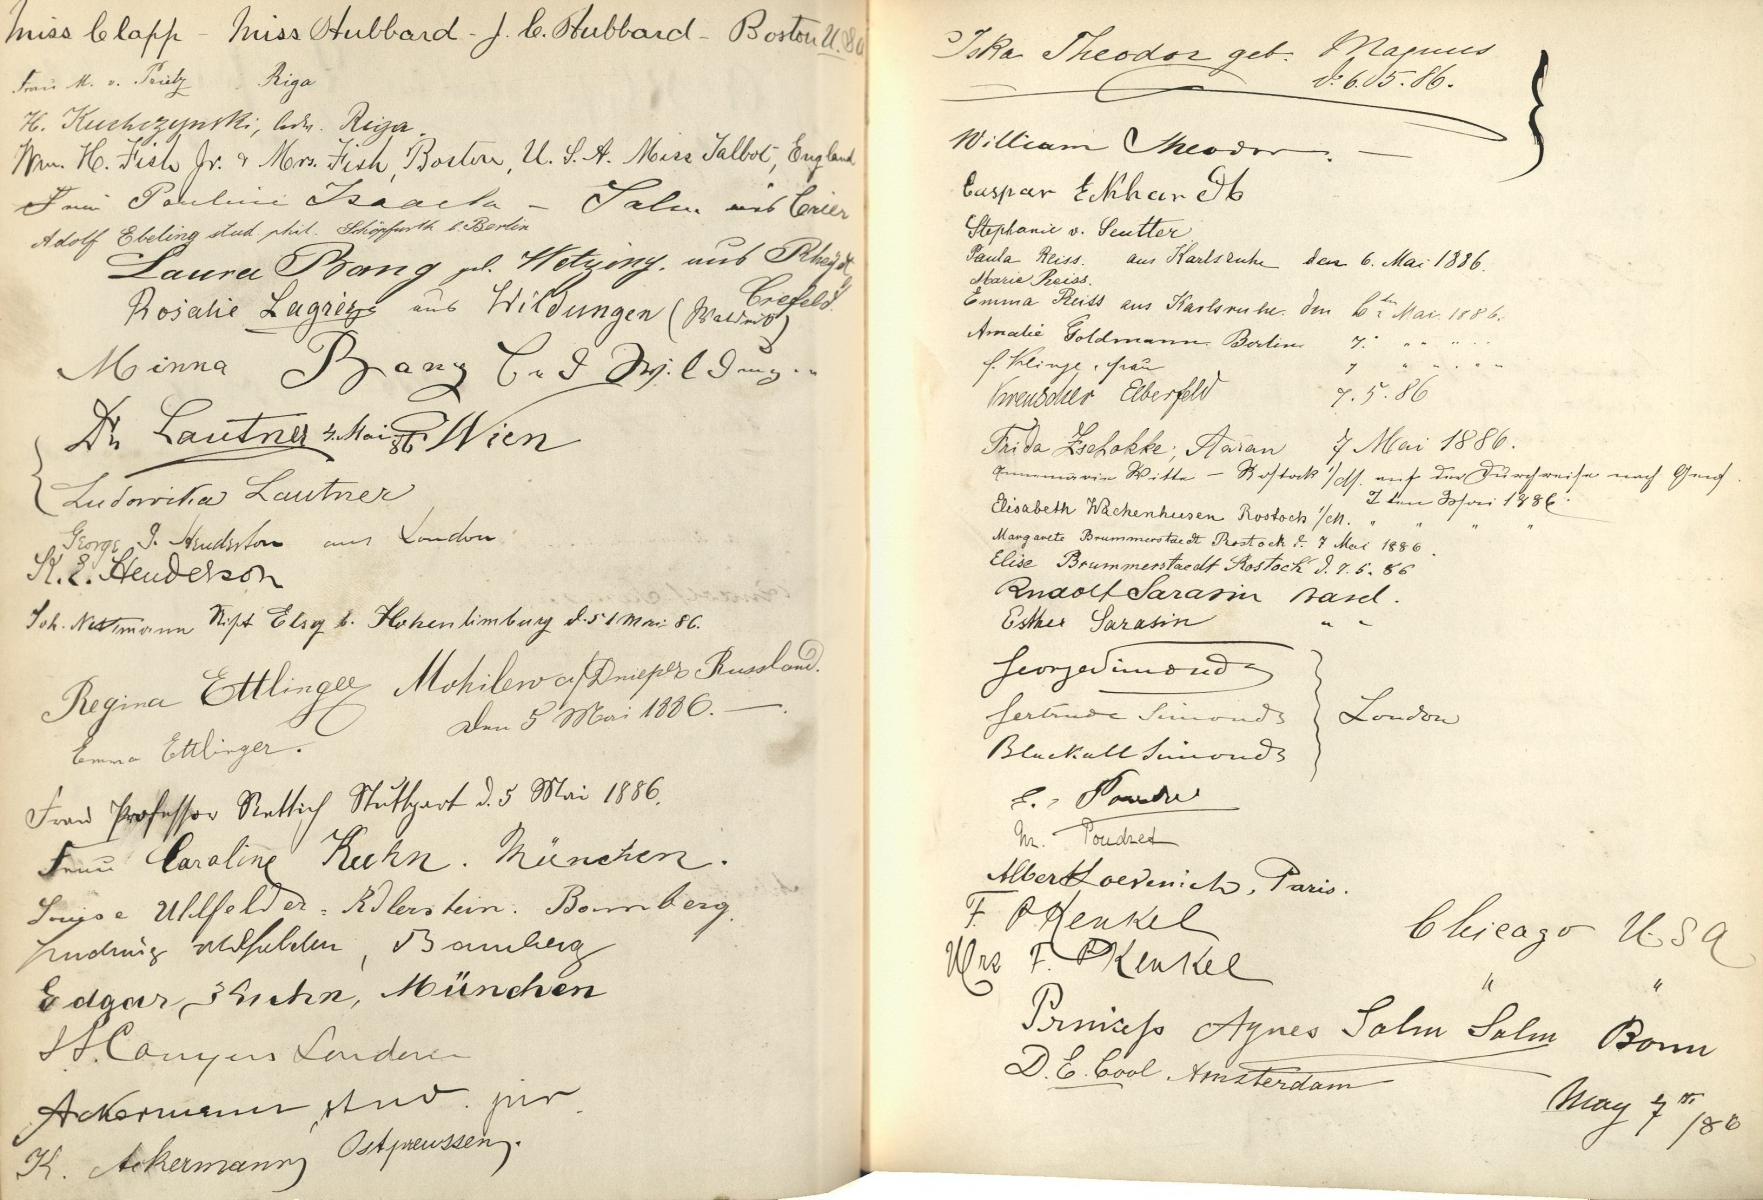 Miss Clapp - Miss Hubbard - J. C. Hubbard - Boston U.S.A
Frau M. v. Riga
H. Kuchczynski, Riga.
Wm. H. Fish Jr. & Mrs. Fish, Boston, U. S. A. Miss Talbot, England
Frau Pauline Isaacla - Salm aus Trier
Adolf Ebeling stud. phil. Schöpfurth b Berlin
Laura Bang aus Rheydt
Crefeld.
Rosalie aus Wildungen
Minna Bang Bad Wildungen
Dr Lautner 4. Mai 86 Wien
Ludowika Lautner
George J. Henderson aus London
K. E. Henderson
Joh. Elsey b. Hohenlimburg d. 5 Mai 86.
Regina Ettlinger Mohilew a/Dnieper Russland.
Den 5 Mai 1886. —
Emma Ettlinger.
Frau Professor Rettich Stuttgart d. 5 Mai 1886.
Frau Caroline Kuhn. München.
Louise Uhlfelder - Adlerstein. Bamberg.
Uhlfelder, Bamberg
Edgar Kuhn, München
Conyers London
Ackermann, stud. jur.
K. Ackermann, Ostpreussen.
Iska Theodor geb. Magnus
d. 6.05.86.
William Theodor. —
Caspar Ekhardt
Stephanie v. Seutter
Paula Reiss. aus Karlsruhe den 6. Mai 1886.
Marie Reiss.
Emma Reiss aus Karlsruhe. den 6ten Mai 1886.
Amalie Goldmann. Berlin 7. " " "
Klinge, 7 " " "
Kreuscher Elberfeld 7.5.86
Frida Zschokke, Aarau 7 Mai 1886.
Annemarie Witte - Rostock i/M. auf der Durchreise nach Genf.
7ten Mai 1886.
Elisabeth Wachenhusen Rostock i/M. " " " "
Margarete Brummerstaedt Rostock d. 7 Mai 1886.
Elise Brummerstaedt Rostock d. 7.5.86
Rudolf Sarasin Basel.
Esther Sarasin " "
George Simonds
Gertrude Simonds London
Blackall Simonds
E. Poudret
M. Poudret
Albert Loevenich, Paris.
F. P Kenkel Chicago U.S A
Mrs F. P Kenkel " "
Prinicess Agnes Salm Salm Bonn
D. E. Cool Amsterdam
May 7th /86